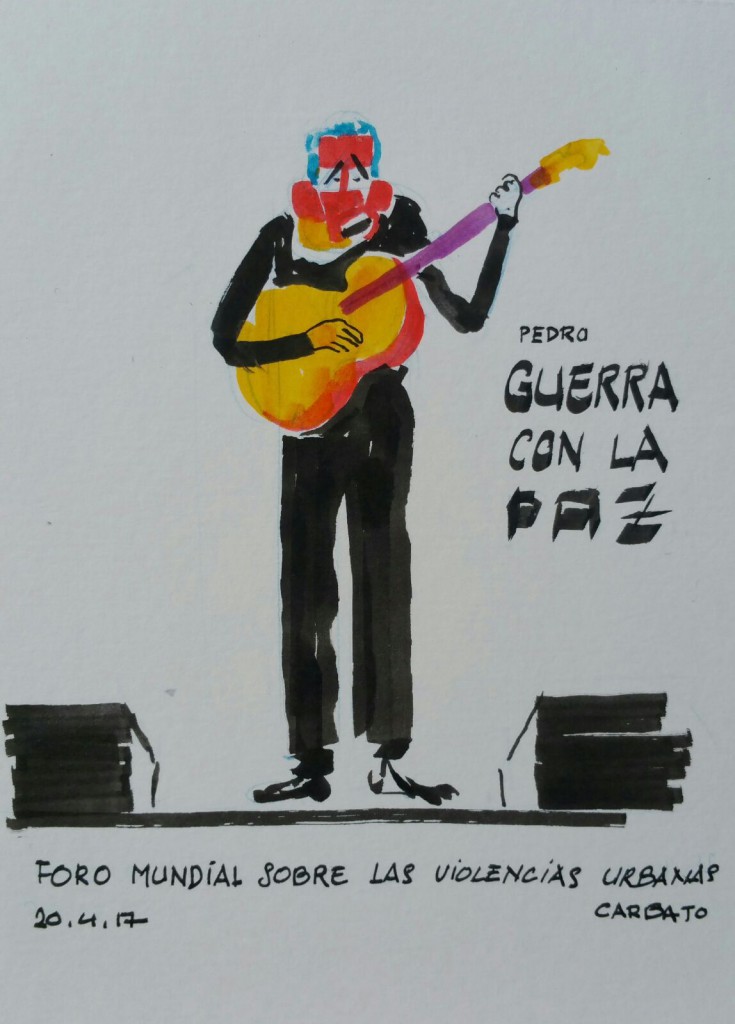 PEDRO
GUERRA
CON LA
PAZ
FORO MUNDIAL SOBRE LAS VIOLENCIAS URBANAS
20.4.17
CARBATO